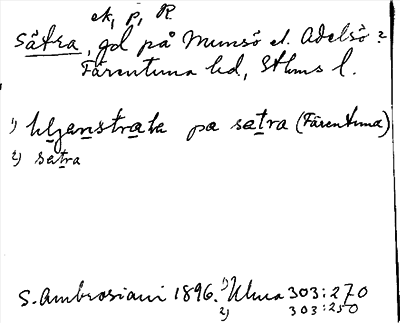 ek, p, R
Sätra, gd på Munsö el. Adelsö?
Färentuna hd, Sthms l.
1) pa sätra (Färentuna)
2) sätra
S. Ambrosiani 1896. 1) Ulma 303:270
2) 303:250